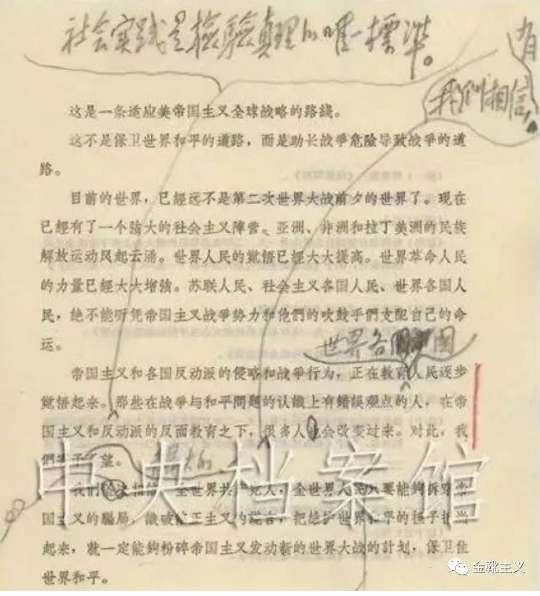 社会实践是檢驗真理的唯一標準。
有
我们相信，
这是一条适应美帝国主义全球战略的路綫。
这不是保卫世界和平的道路，而是助长战爭危险导致战爭的道
路。
目前的世界，已經远不是第二次世界大战前夕的世界了。現在
已經有了一个強大的社会主义陣营。亚洲、非洲和拉丁美洲的民族
解放运动风起云涌。世界人民的覺悟已經大大提高。世界革命人民
的力量已經大大增強。苏联人民、社会主义各国人民、世界各国人
民，絕不能听凭帝国主义战爭势力和他們的吹鼓手們支配自己的命
运。
世界各国
帝国主义和各国反动派的侵略和战爭行为，正在教育人民逐步
覺悟起来。那些在战爭与和平問題的认識上有錯誤观点的人，在帝
国主义和反动派的反面教育之下，很多人会改变过来。对此，我
們 望。
中央档案館
我們 相信，全世界共产党人，全世界人民只要能夠拆穿帝
国主义的騙局，識破修正主义的謊言，把維护世界和平的担子担当
起来，就一定能夠粉碎帝国主义发动新的世界大战的計划，保卫住
世界和平。
金靴主义